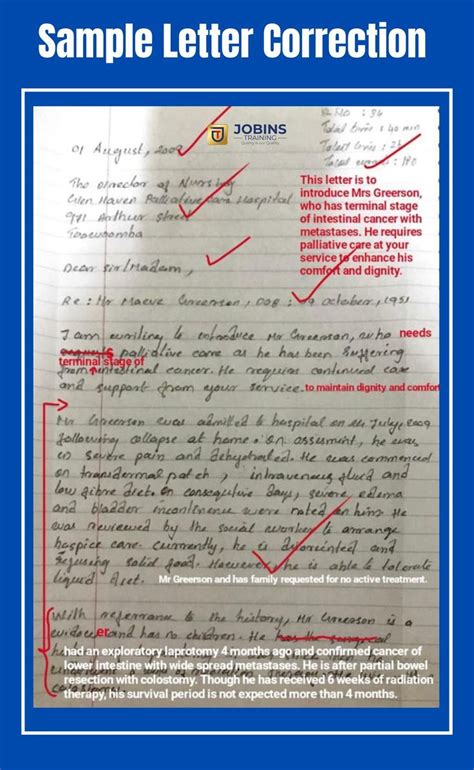 Sample Letter Correction
JOBINS
TRAINING
: 34
Total time : 40 min
Total lines : 2
Total words : 190
01 August, 2009
The Director of Nursing
Glen Haven Palliative Care Hospital
971 Arthur Street
Toowoomba
This letter is to
introduce Mrs Greerson,
who has terminal stage
of intestinal cancer with
metastases. He requires
palliative care at your
service to enhance his
comfort and dignity.
Dear Sir/Madam,
Re : Mr Maeve Greerson, DOB : 09 October, 1951
I am writing to introduce Mr Greerson, who needs
requests palliative care as he has been suffering
terminal stage of
from intestinal cancer. He requires continued care
and support from your service. to maintain dignity and comfort
Mr Greerson was admitted to hospital on July, 2009
following collapse at home. on assessment, he was
in severe pain and dehydrated. He was commenced
on transdermal patch, intravenous fluid and
low fibre diet. On consequtive days, severe edema
and bladder incontinence were noted on him. He
was reviewed by the social worker to arrange
hospice care. Currently, he is disoriented and
refusing solid food. However, he is able to tolerate
liquid diet. Mr Greerson and has family requested for no active treatment.
With referrance to the history, Mr Greerson is a
er
and has no children. He has the surgical
had an exploratory laprotomy 4 months ago and confirmed cancer of
lower intestine with wide spread metastases. He is after partial bowel
resection with colostomy. Though he has received 6 weeks of radiation
therapy, his survival period is not expected more than 4 months.